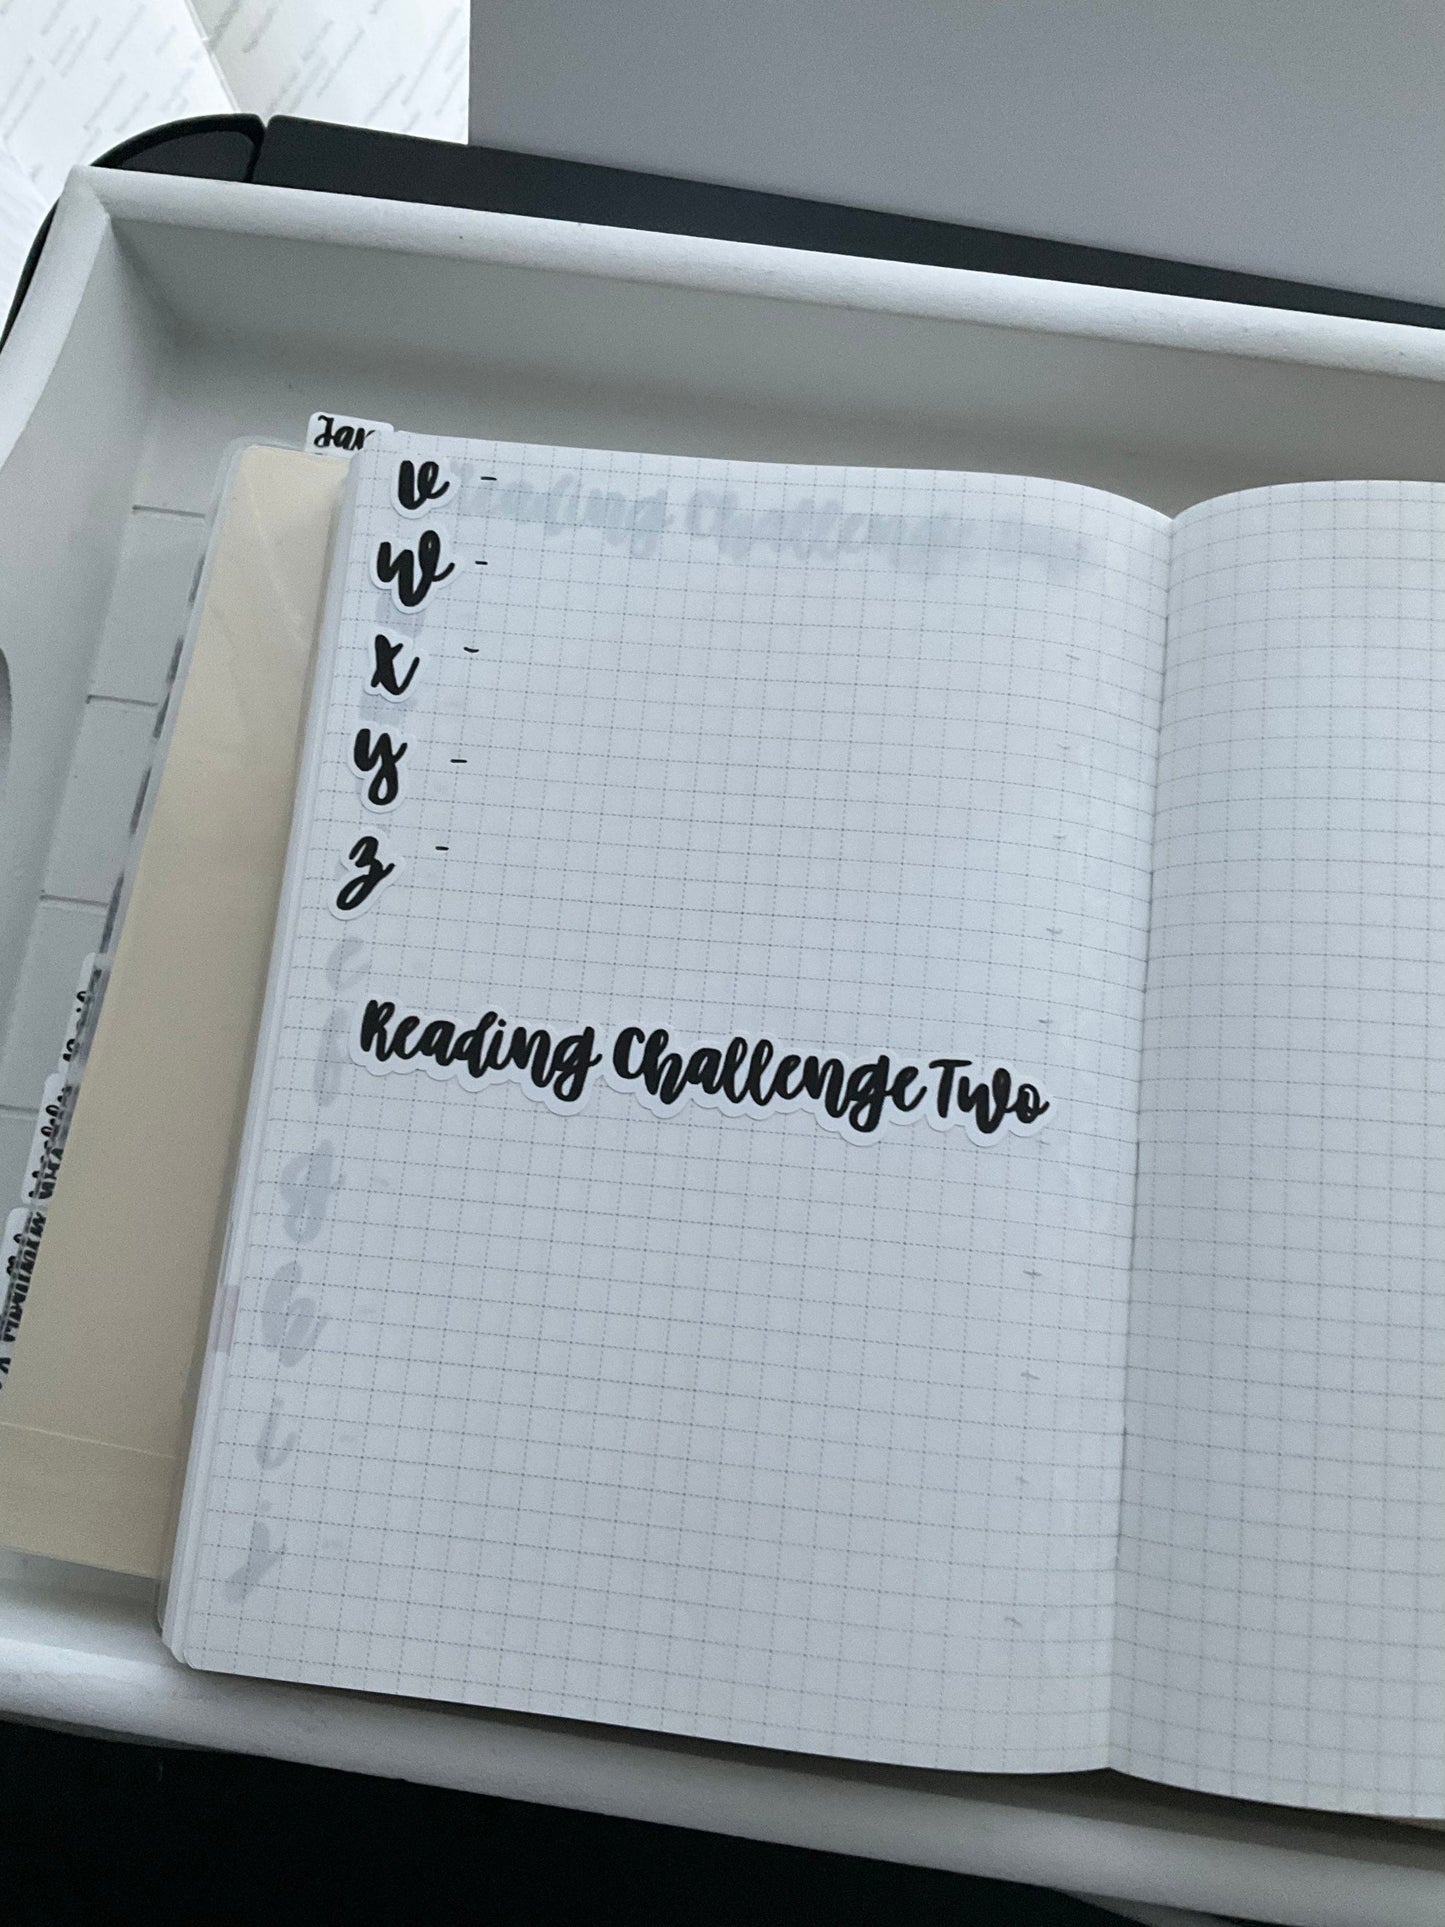 Jan
v -
w -
x -
y -
z -
Reading Challenge Two